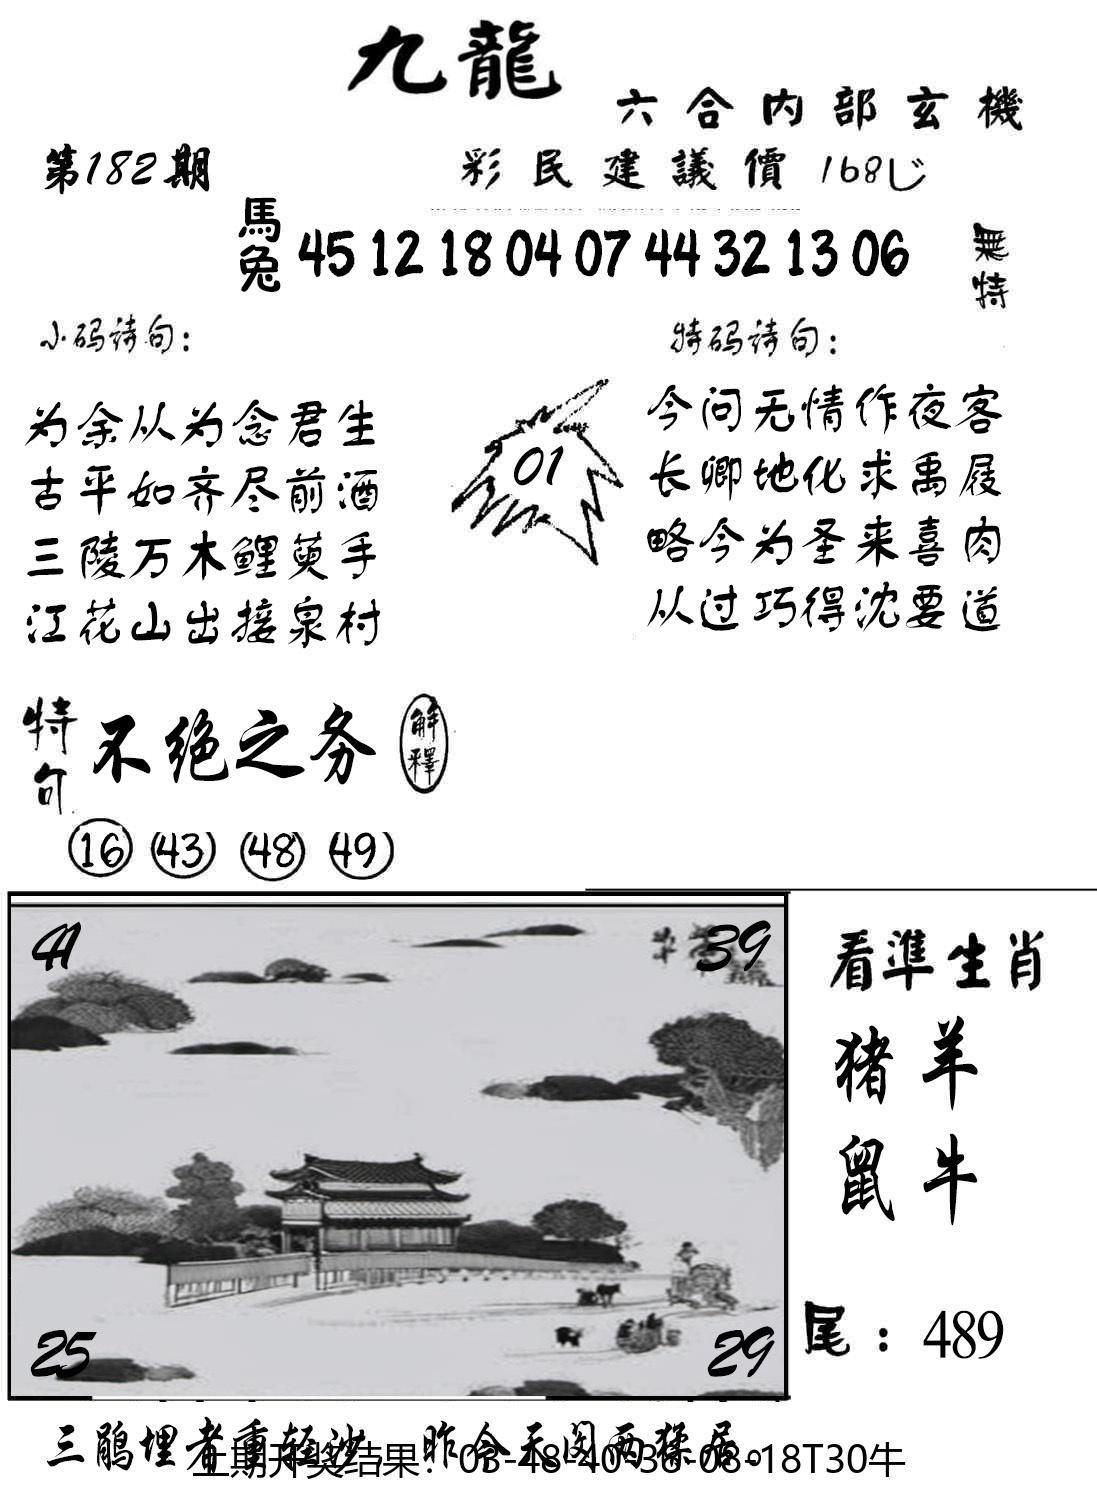 九龍
六合内部玄機
第182期
彩民建議價 168
馬兔 45 12 18 04 07 44 32 13 06
無特
小码诗句:
为余从为念君生
古平如齐尽前酒
三陵万木鲤萸手
江花山出接泉村
01
特码诗句:
今问无情作夜客
长卿地化求禹屐
略今为圣来喜肉
从过巧得沈要道
特句 不绝之务 解釋
16 43 48 49
41 39
25 29
看準生肖
猪羊
鼠牛
尾:489
三鹃埋者重轻沙 昨令天因两猱居。
上期开奖结果:03-48-40-36-08-18T30牛